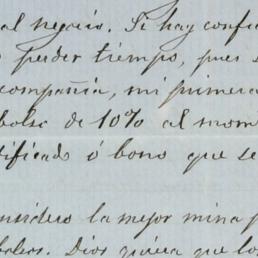 al negocio. Si hay confi
perder tiempo, pues
compañia, mi primera
bolsc de 10% al mom
tificado ó bono que se
nsidero la mejor mina p
bolsos. Dios quiera que los